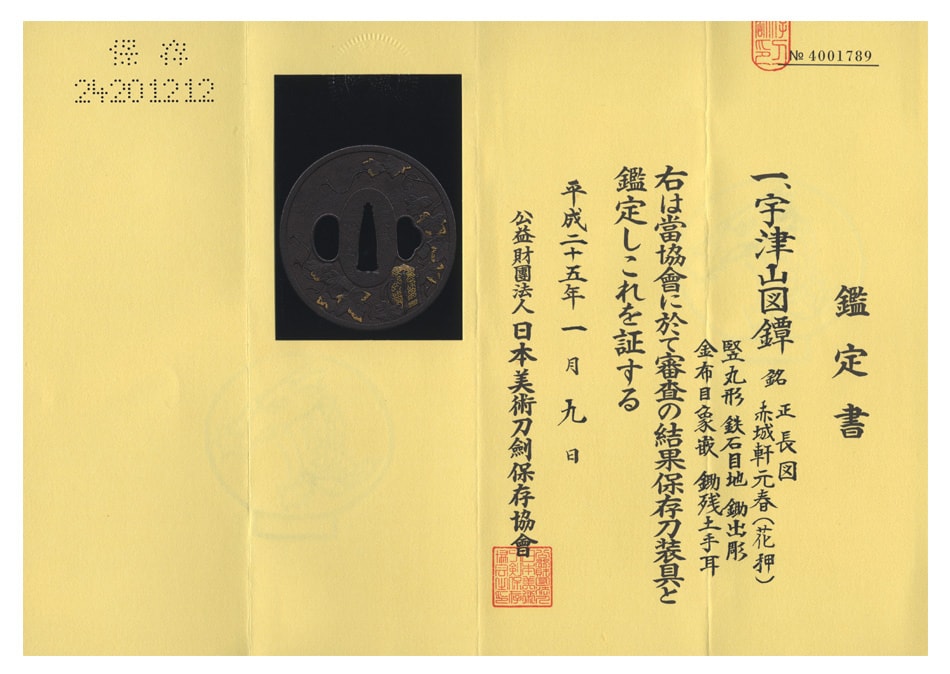 № 4001789
鑑定書
一、宇津山図鐔 銘 正長図
赤城軒元春(花押)
竪丸形 鉄石目地 鋤出彫
金布目象嵌 鋤残土手耳
右は當協會に於て審査の結果保存刀装具と
鑑定しこれを証する
平成二十五年一月九日
公益財團法人日本美術刀劍保存協會
保存
24201212